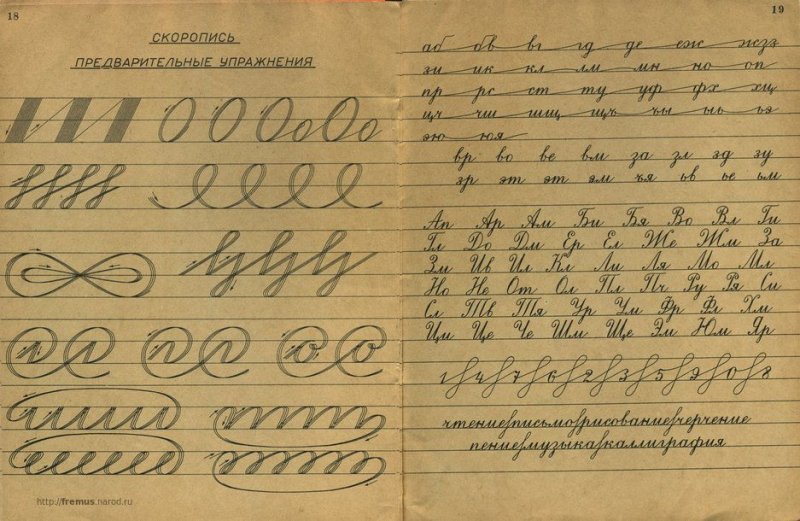 18
СКОРОПИСЬ
ПРЕДВАРИТЕЛЬНЫЕ УПРАЖНЕНИЯ
http://fremus.narod.ru
19
аб бв вг гд де еж жз
зи ик кл лм мн но оп
пр рс ст ту уф фх хц
цч чш шщ щъ ъы ыь ьэ
эю юя
вр во ве вм за зл зд зу
зр эт эт эм ъя ьв ье ьм
Ап Ар Ам Би Бя Во Вл Ги
Гл До Дм Ер Ел Же Жм За
Зм Ив Ил Кл Ли Ля Мо Мл
Но Не От Ол Пл Пч Ру Ря Си
Сл Тв Тя Ур Ум Фр Фл Хм
Ци Це Че Шм Ще Эм Юм Яр
1 4 7 6 2 3 5 9 0 8
чтение письмо рисование черчение
пение музыка каллиграфия